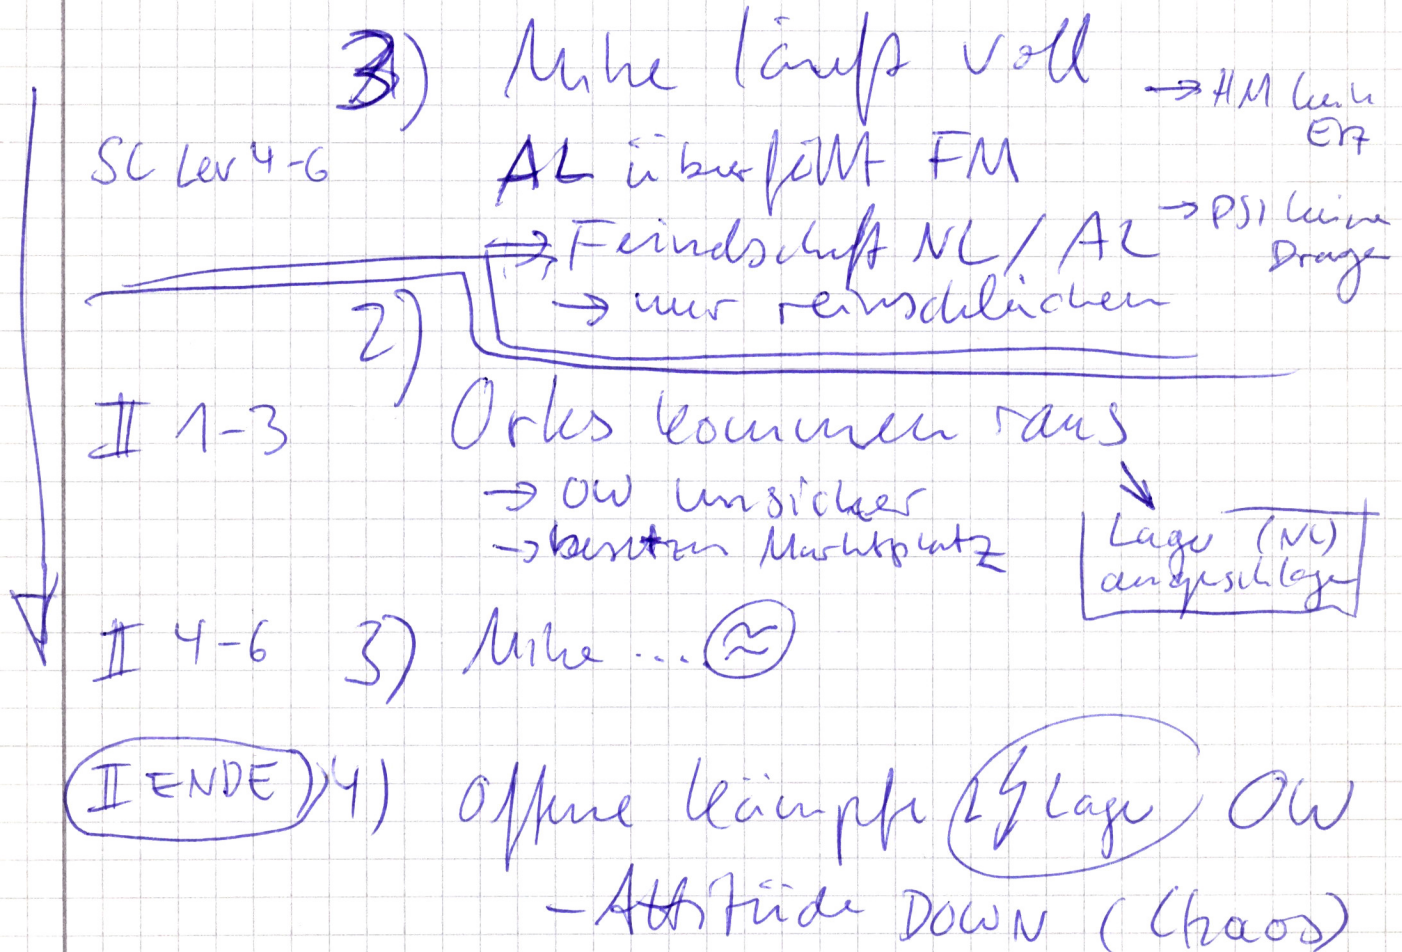 3) Mine läuft voll
→ HM kein
Erz
SC Lev 4-6 AL überfällt FM
→ Feindschaft NL / AL
→ PSI keine
Drogen
→ nur reinschleichen
2)
II 1-3 Orks kommen raus
→ OW unsicher
→ besetzen Marktplatz
Lager (NL)
angeschlagen
II 4-6 3) Mine ...
II ENDE 4) Offene Kämpfe Lager OW
- Attitüde DOWN (Chaos)